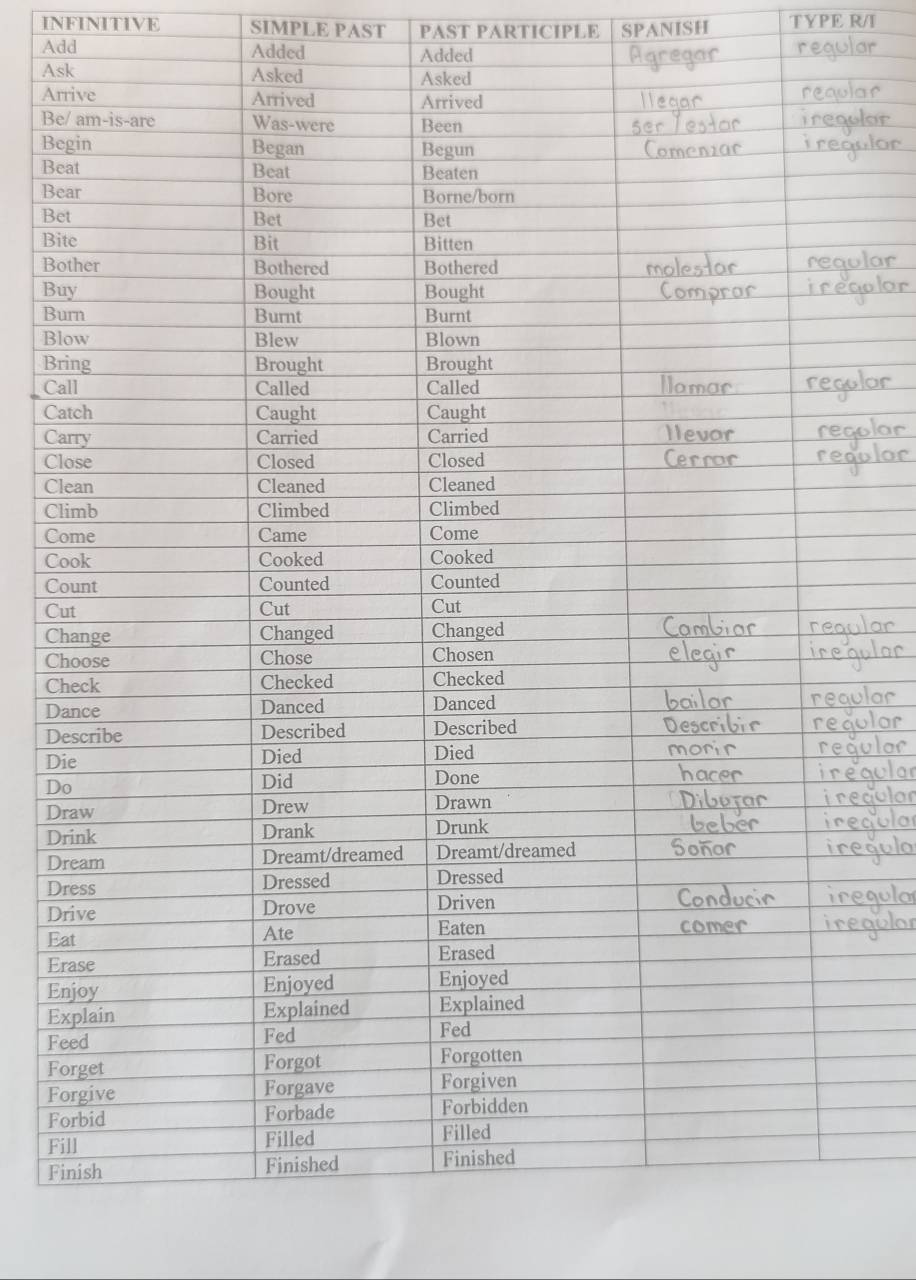 INFINITIVE SIMPLE PAST PAST PARTICIPLE SPANISH TYPE R/I
Add Added Added Agregar regular
Ask Asked Asked
Arrive Arrived Arrived llegar regular
Be/ am-is-are Was-were Been ser / estar iregular
Begin Began Begun Comenzar iregular
Beat Beat Beaten
Bear Bore Borne/born
Bet Bet Bet
Bite Bit Bitten
Bother Bothered Bothered molestar regular
Buy Bought Bought Comprar iregular
Burn Burnt Burnt
Blow Blew Blown
Bring Brought Brought
Call Called Called llamar regular
Catch Caught Caught
Carry Carried Carried llevar regular
Close Closed Closed Cerrar regular
Clean Cleaned Cleaned
Climb Climbed Climbed
Come Came Come
Cook Cooked Cooked
Count Counted Counted
Cut Cut Cut
Change Changed Changed Cambiar regular
Choose Chose Chosen elegir iregular
Check Checked Checked
Dance Danced Danced bailar regular
Describe Described Described Describir regular
Die Died Died morir regular
Do Did Done hacer iregular
Draw Drew Drawn Dibujar iregular
Drink Drank Drunk beber iregular
Dream Dreamt/dreamed Dreamt/dreamed Soñar iregula
Dress Dressed Dressed
Drive Drove Driven Conducir iregular
Eat Ate Eaten comer iregular
Erase Erased Erased
Enjoy Enjoyed Enjoyed
Explain Explained Explained
Feed Fed Fed
Forget Forgot Forgotten
Forgive Forgave Forgiven
Forbid Forbade Forbidden
Fill Filled Filled
Finish Finished Finished